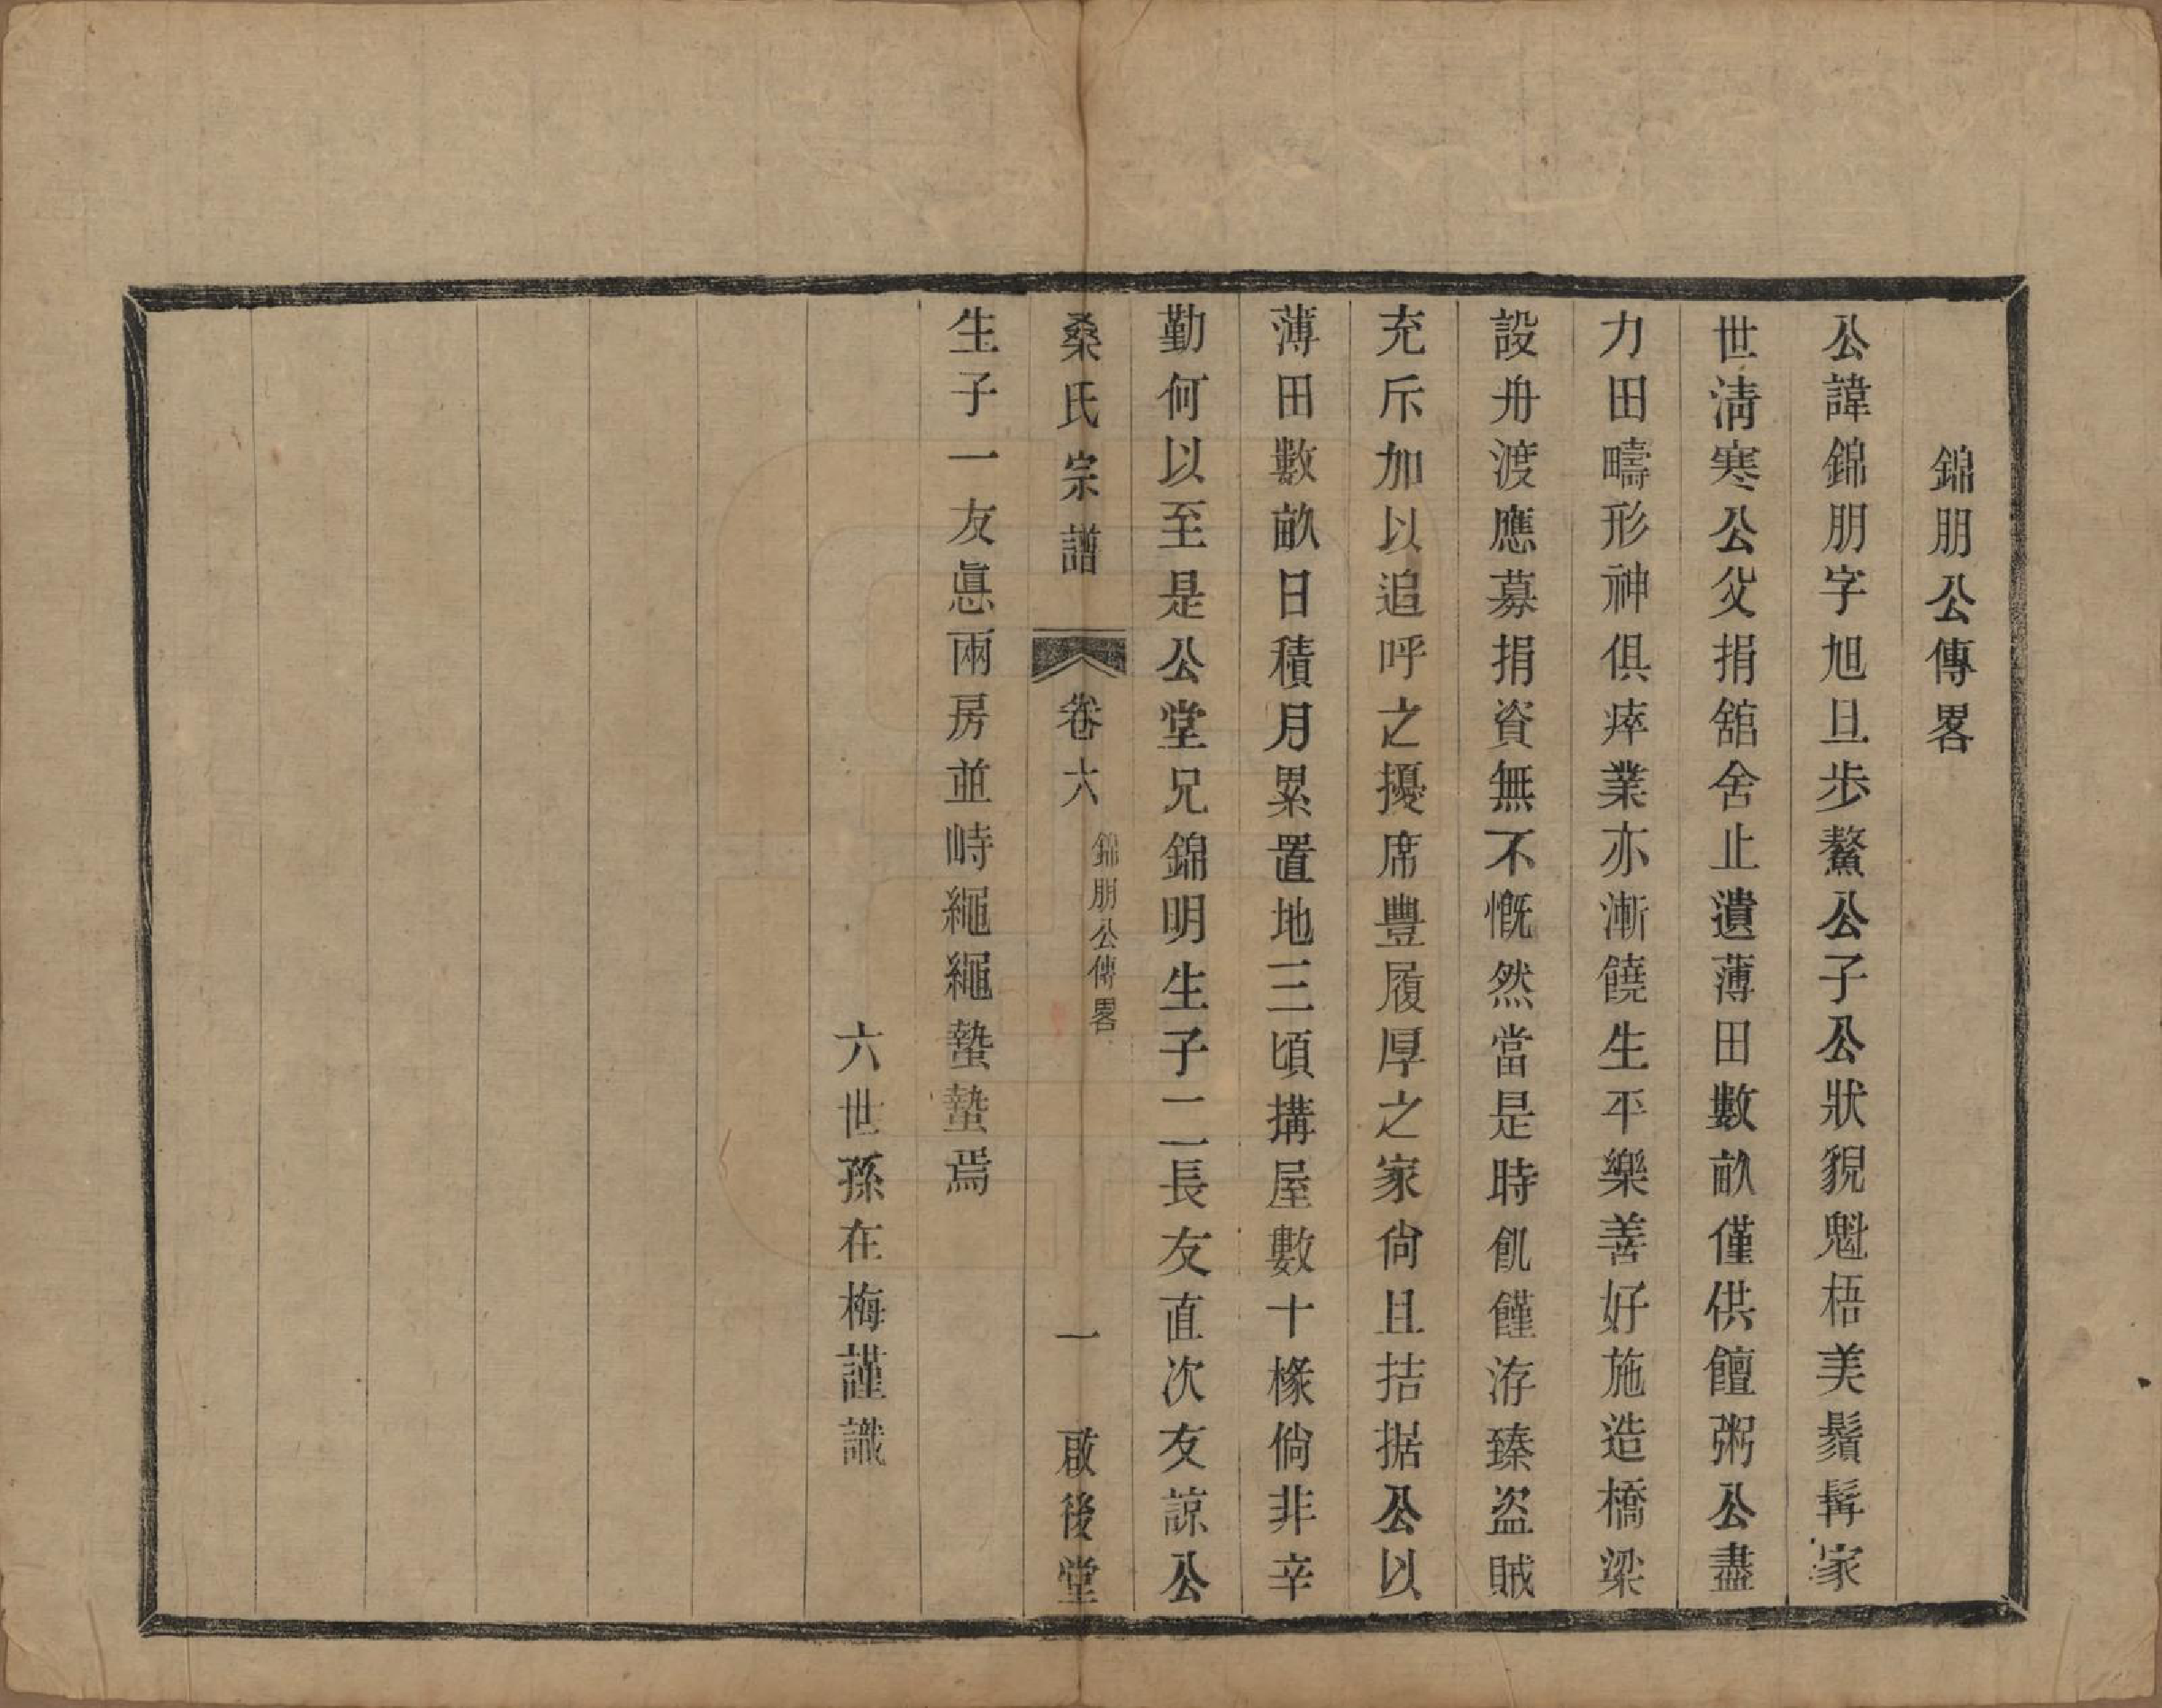 錦朋公傳畧
公諱錦朋字旭旦歩鰲公子公狀貎魁梧美鬚髯家
世淸寒公父捐舘舍止遺薄田數畝僅供饘粥公盡
力田疇形神俱瘁業亦漸饒生平樂善好施造橋梁
設舟渡應募捐資無不慨然當是時飢饉洊臻盜賊
充斥加以追呼之擾席豐履厚之家尙且拮据公以
薄田數畝日積月累置地三頃搆屋數十椽倘非辛
勤何以至是公堂兄錦明生子二長友直次友諒公
桑氏宗譜 卷六 錦朋公傳畧 一 啟後堂
生子一友悳兩房並峙繩繩蟄蟄焉
六世孫在梅謹識